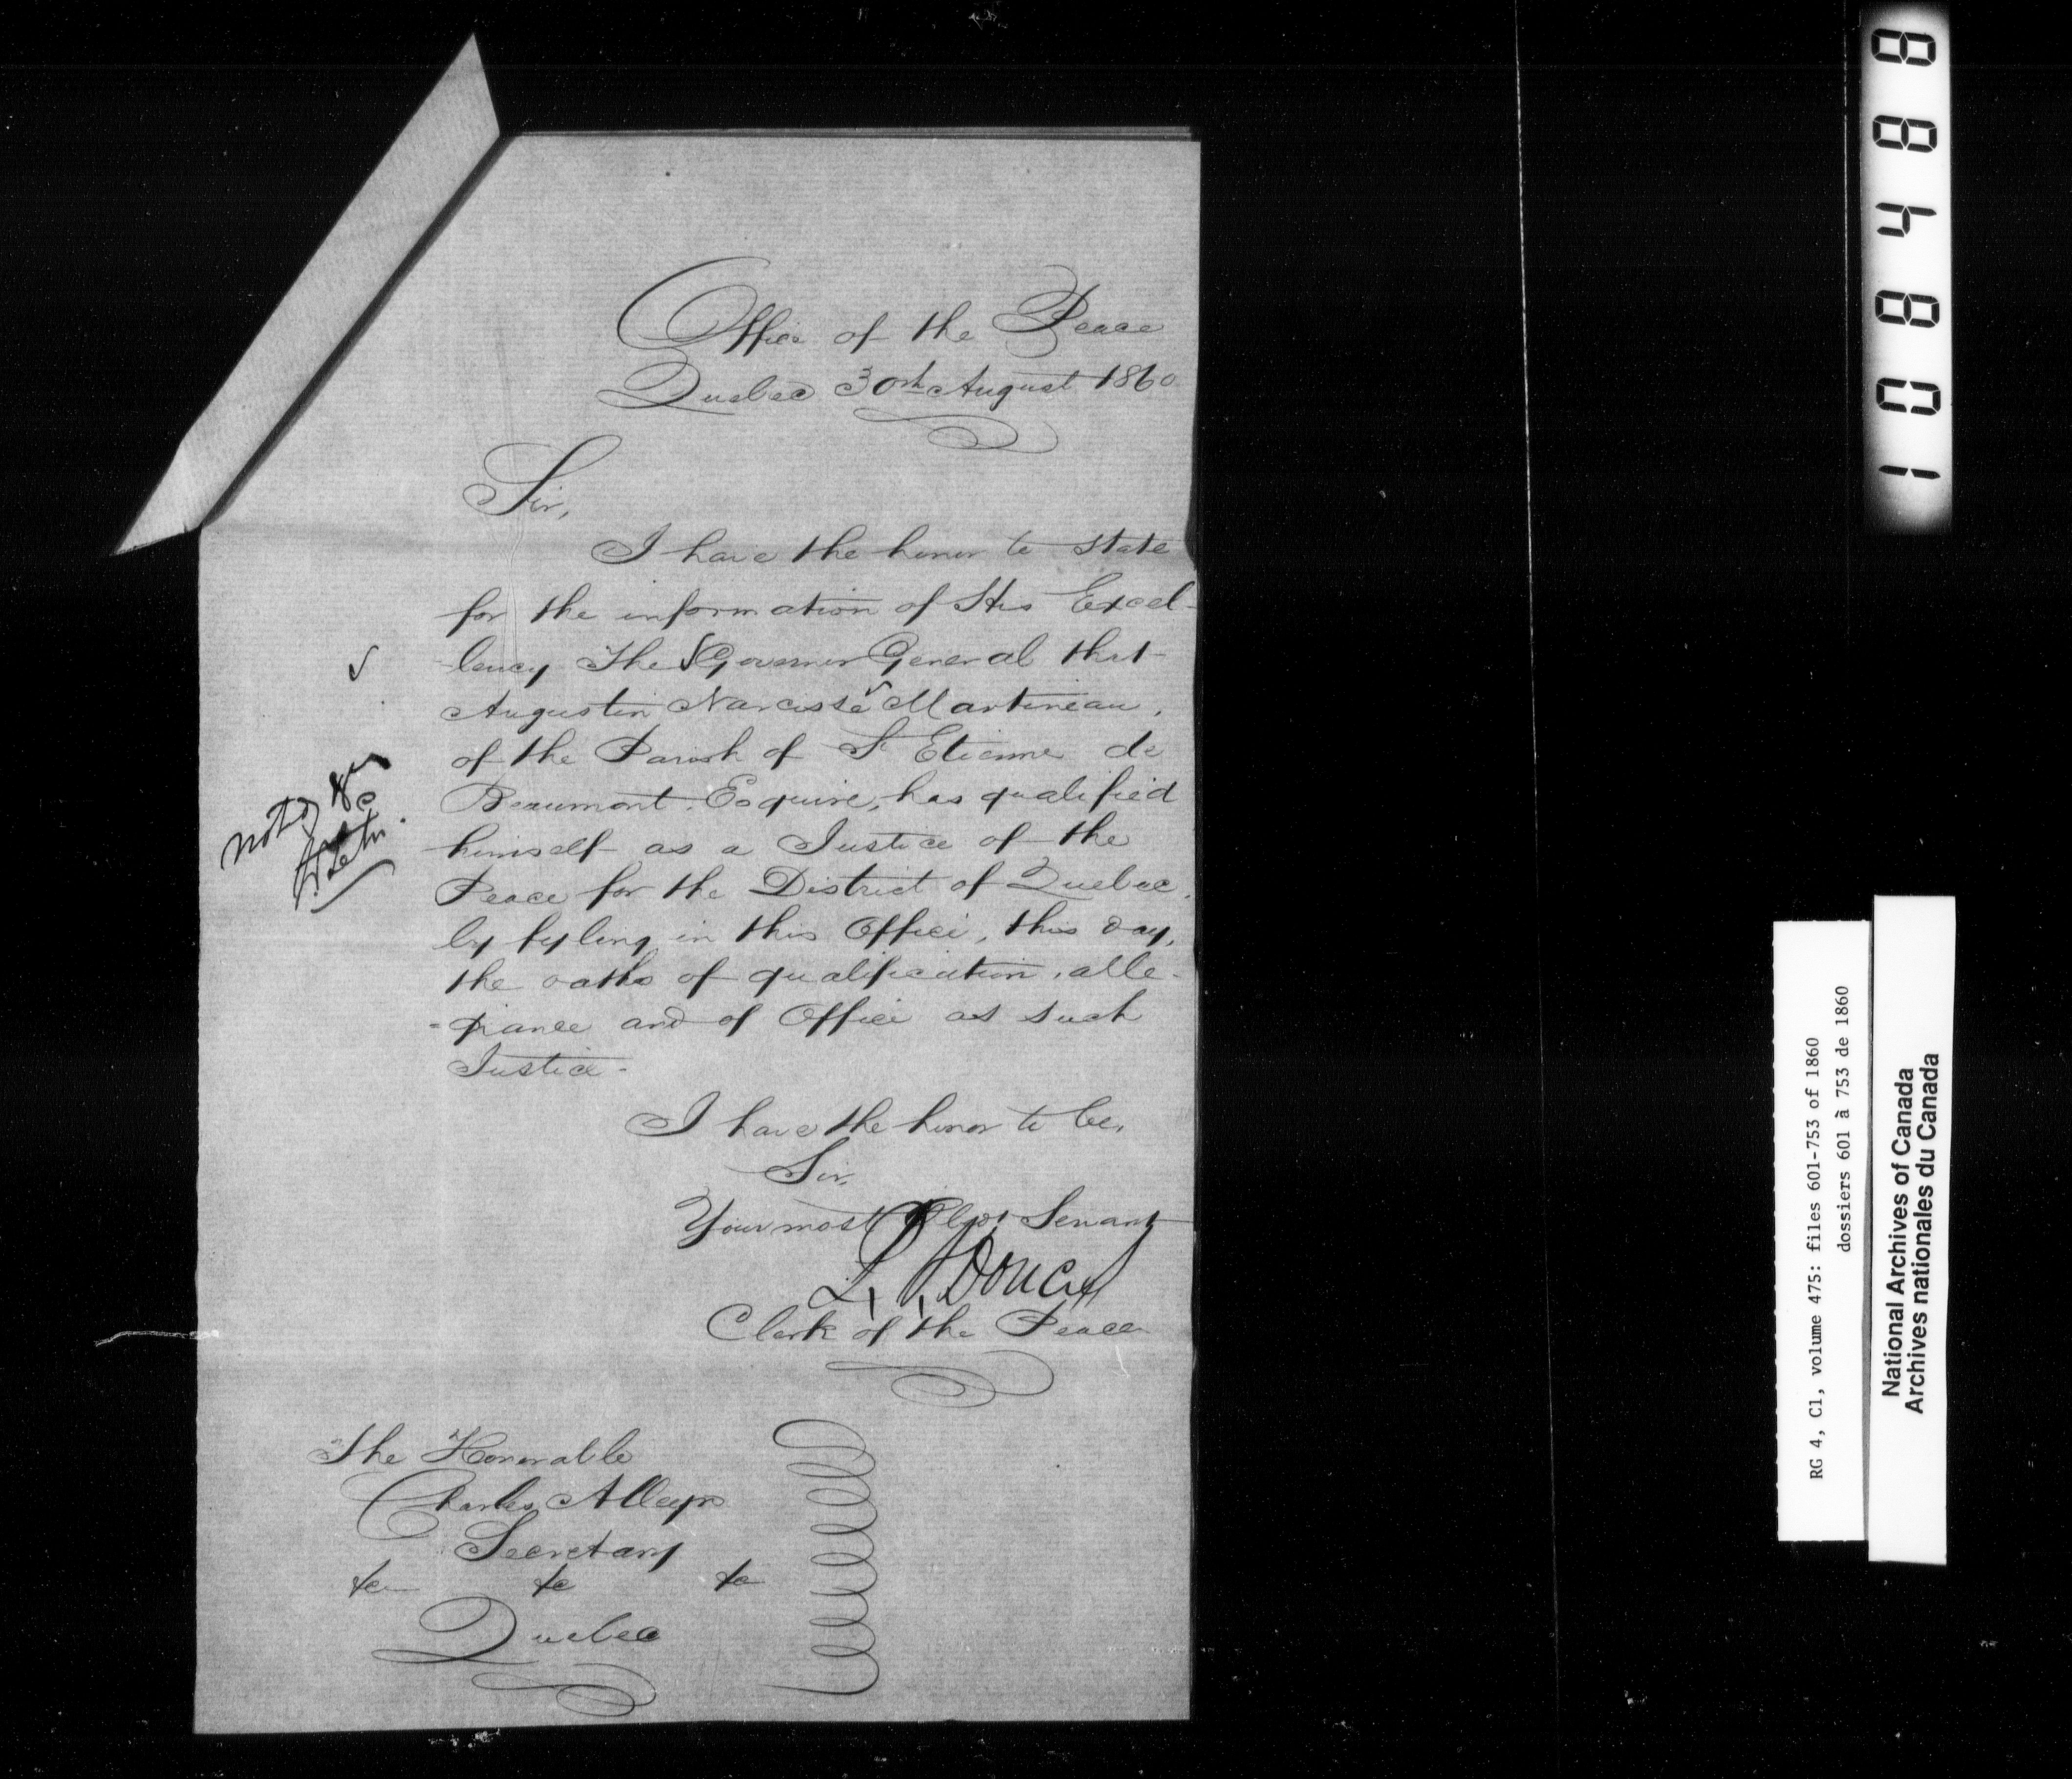 Office of the Peace
Quebec 30th August 1860
Sir,
I have the honor to state
for the information of His Excel-
-lency The Governor General that
Augustin Narcisse Martineau,
of the Parish of St Etienne de
Beaumont, Esquire, has qualified
himself as a Justice of the
Peace for the District of Quebec,
by fyling in this Office, this day,
the oaths of qualification, alle-
-giance and of Office as such
Justice.
I have the honor to be,
Sir,
Your most Obedt Servant
Clerk of the Peace
noted
The Honorable
Charles Alleyn
Secretary
&c &c &c
Quebec
1084888
RG 4, C1, volume 475: files 601-753 of 1860
dossiers 601 à 753 de 1860
National Archives of Canada
Archives nationales du Canada